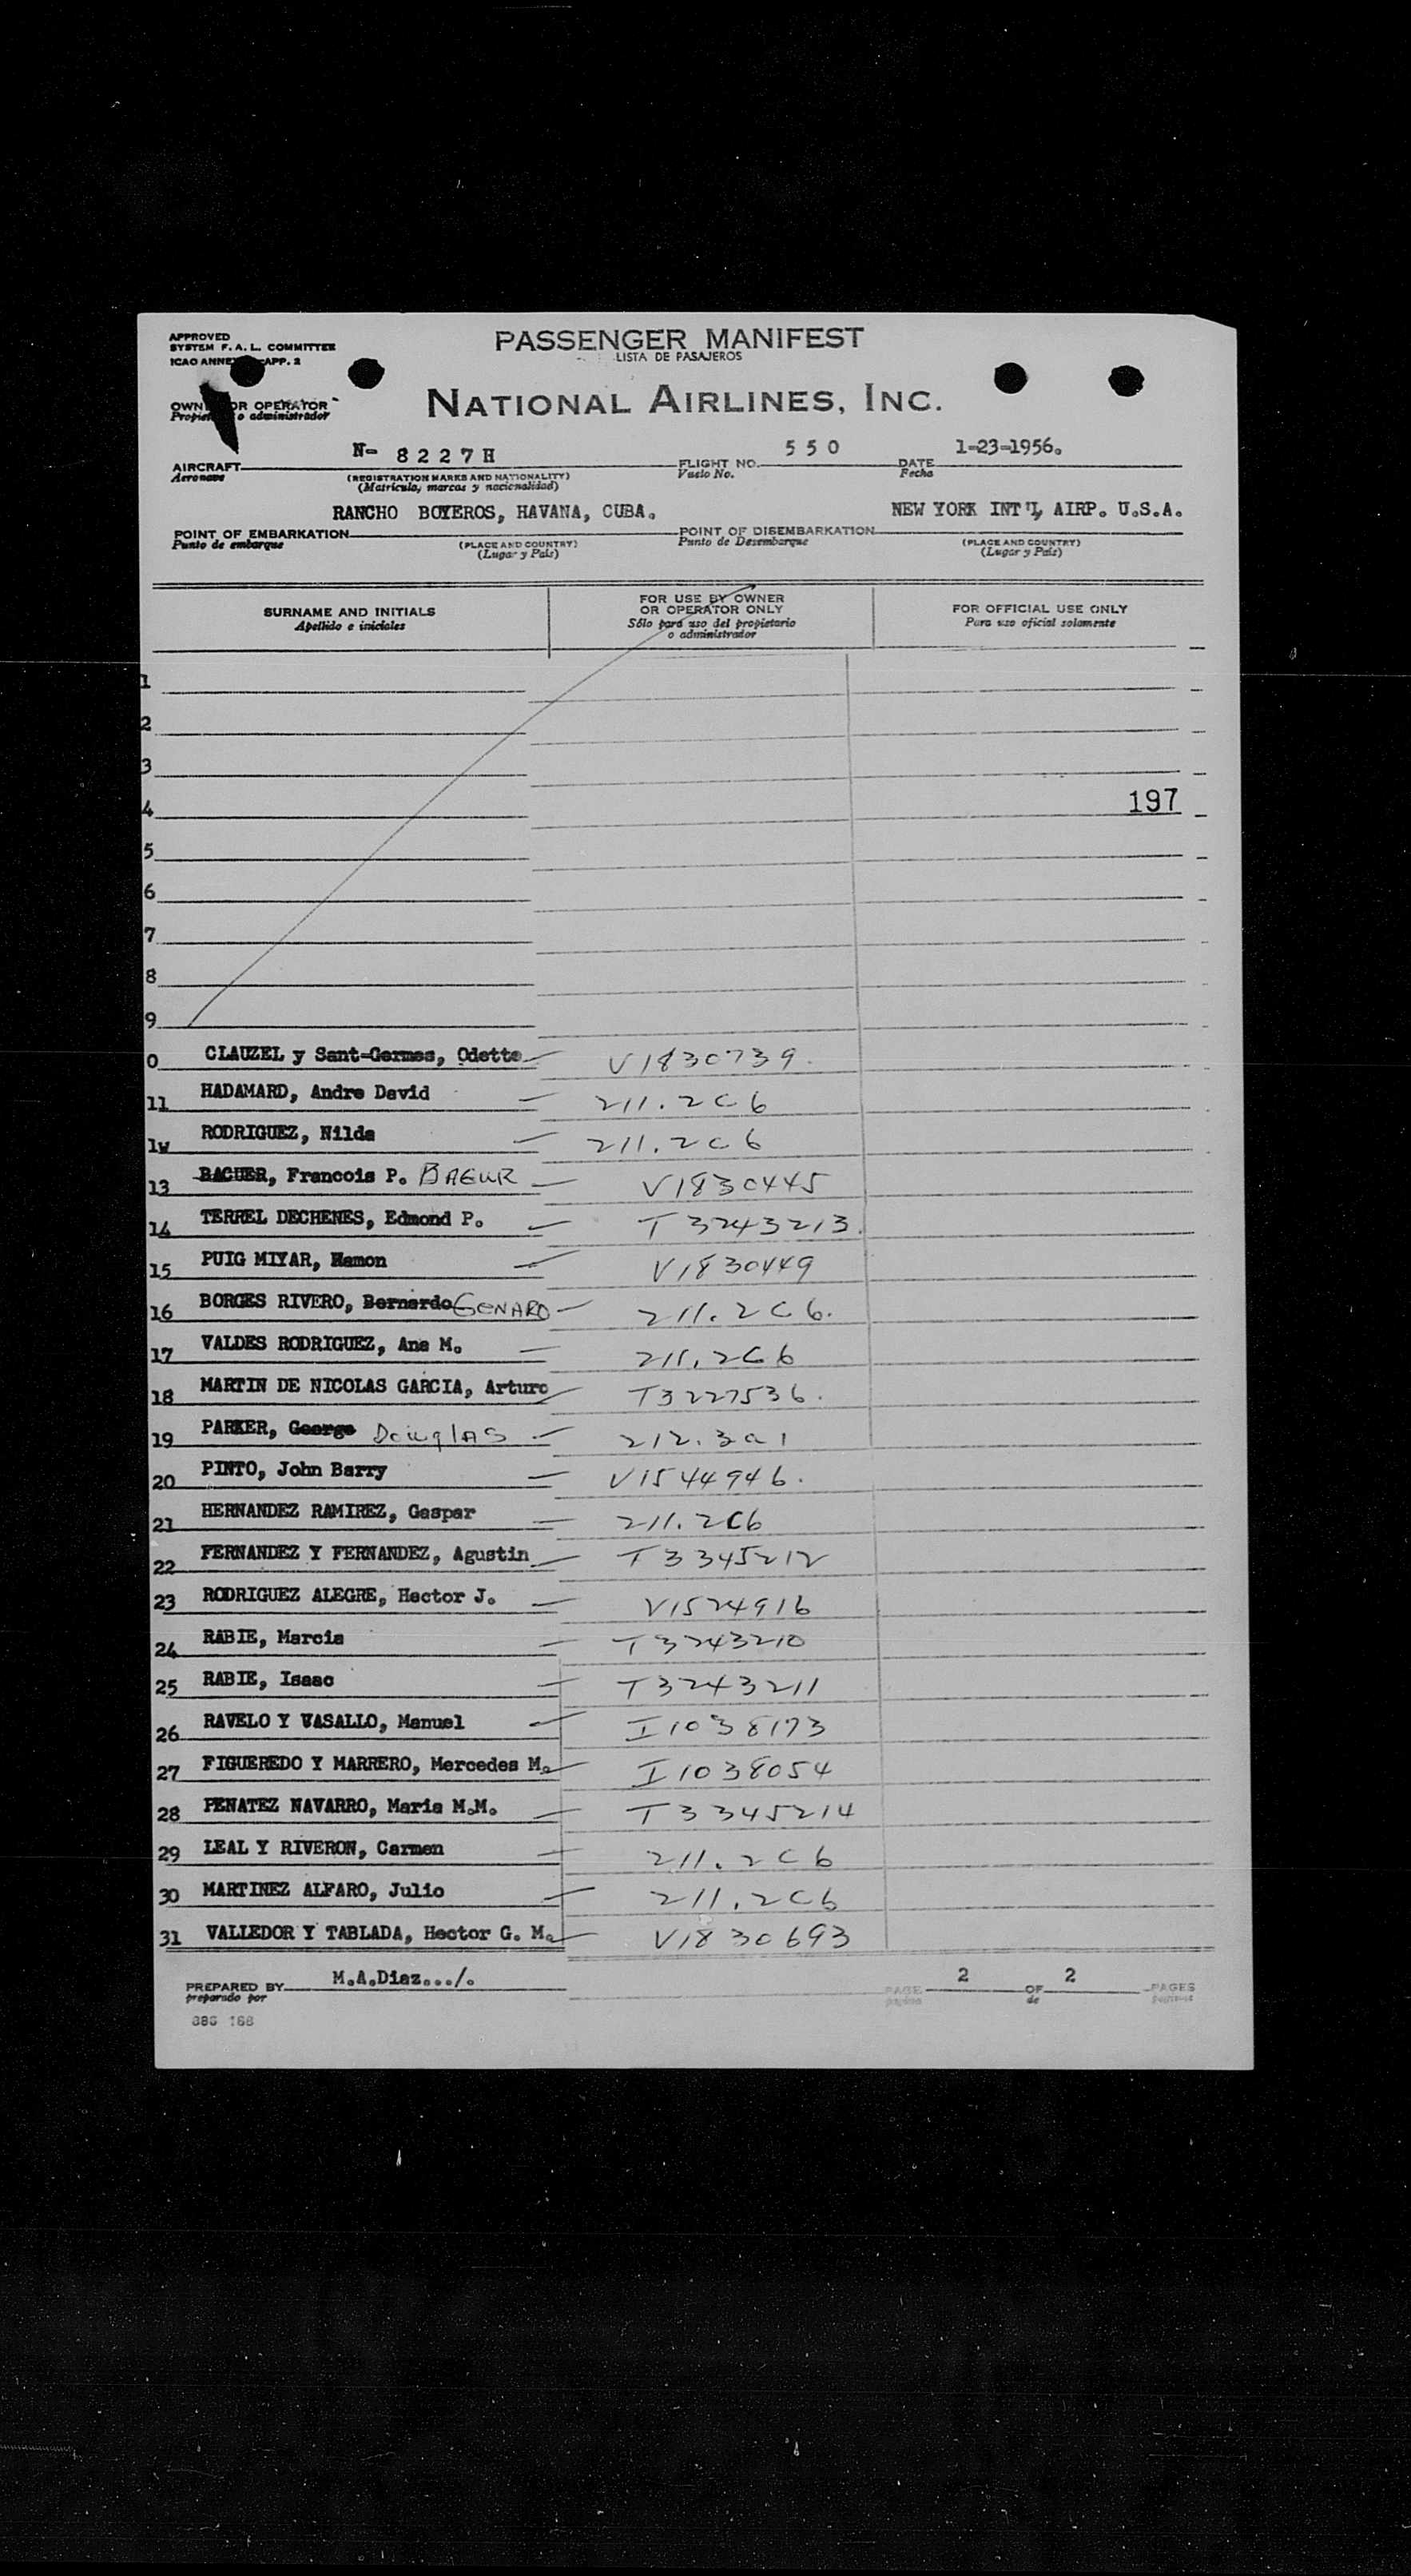 APPROVED
SYSTEM F. A. L. COMMITTEE
ICAO ANNEX APP. 2
PASSENGER MANIFEST
LISTA DE PASAJEROS
OWNER OR OPERATOR
Propietario o administrador
NATIONAL AIRLINES, INC.
AIRCRAFT N- 8 2 2 7 H FLIGHT NO. 5 5 0 DATE 1-23-1956.
Aeronave (REGISTRATION MARKS AND NATIONALITY) Vuelo No. Fecha
(Matricula, marcas y nacionalidad)
RANCHO BOYEROS, HAVANA, CUBA. NEW YORK INT'L AIRP. U.S.A.
POINT OF EMBARKATION POINT OF DISEMBARKATION
Punto de embarque (PLACE AND COUNTRY) Punto de Desembarque (PLACE AND COUNTRY)
(Lugar y País) (Lugar y País)
SURNAME AND INITIALS FOR USE BY OWNER OR OPERATOR ONLY FOR OFFICIAL USE ONLY
Apellido e iniciales Sólo para uso del propietario o administrador Para uso oficial solamente
1
2
3
4 197
5
6
7
8
9
0 CLAUZEL y Sant-Germes, Odette V1830739.
11 HADAMARD, Andre David 211.2C6
1w RODRIGUEZ, Nilda 211.2C6
13 BAGUER, Francois P. BAGUR V1830445
14 TERREL DECHENES, Edmond P. T3243213.
15 PUIG MIYAR, Ramon V1830449
16 BORGES RIVERO, Bernardo GENARO 211.2C6.
17 VALDES RODRIGUEZ, Ana M. 211.2C6
18 MARTIN DE NICOLAS GARCIA, Arturo T3227536.
19 PARKER, George DouglAS 212.3a1
20 PINTO, John Barry V1544946.
21 HERNANDEZ RAMIREZ, Gaspar 211.2C6
22 FERNANDEZ Y FERNANDEZ, Agustin T3345212
23 RODRIGUEZ ALEGRE, Hector J. V1524916
24 RABIE, Marcia T3243210
25 RABIE, Isaac T3243211
26 RAVELO Y VASALLO, Manuel I1038173
27 FIGUEREDO Y MARRERO, Mercedes M. I1038054
28 PENATEZ NAVARRO, Maria M.M. T3345214
29 LEAL Y RIVERON, Carmen 211.2C6
30 MARTINEZ ALFARO, Julio 211.2C6
31 VALLEDOR Y TABLADA, Hector G. M. V1830693
PREPARED BY M.A.Diaz.../. PAGE 2 OF 2 PAGES
preparado por página de páginas